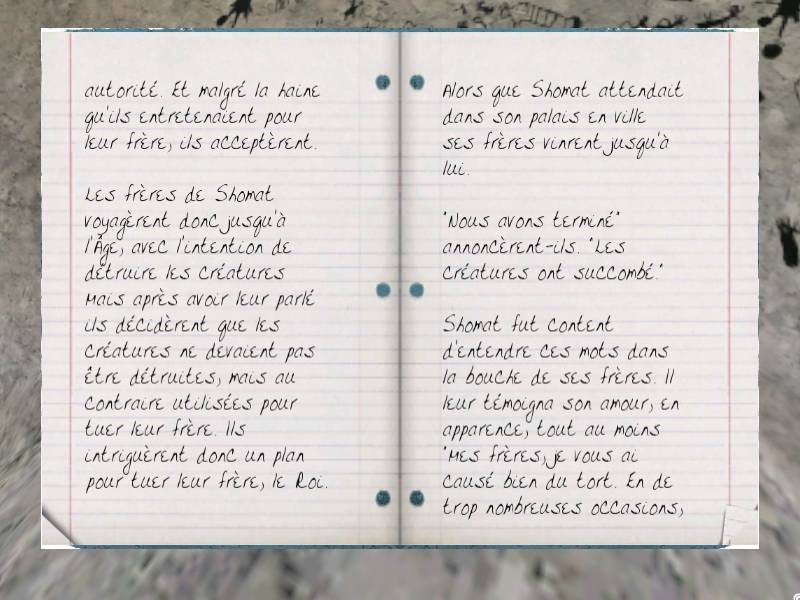 autorité. Et malgré la haine
qu'ils entretenaient pour
leur frère, ils acceptèrent.
Les frères de Shomat
voyagèrent donc jusqu'à
l'Âge, avec l'intention de
détruire les créatures
Mais après avoir leur parlé
ils décidèrent que les
créatures ne devaient pas
être détruites, mais au
contraire utilisées pour
tuer leur frère. Ils
intriguèrent donc un plan
pour tuer leur frère, le Roi.
Alors que Shomat attendait
dans son palais en ville
ses frères vinrent jusqu'à
lui.
"Nous avons terminé"
annoncèrent-ils. "Les
créatures ont succombé."
Shomat fut content
d'entendre ces mots dans
la bouche de ses frères. Il
leur témoigna son amour, en
apparence, tout au moins
"Mes frères, je vous ai
causé bien du tort. En de
trop nombreuses occasions,